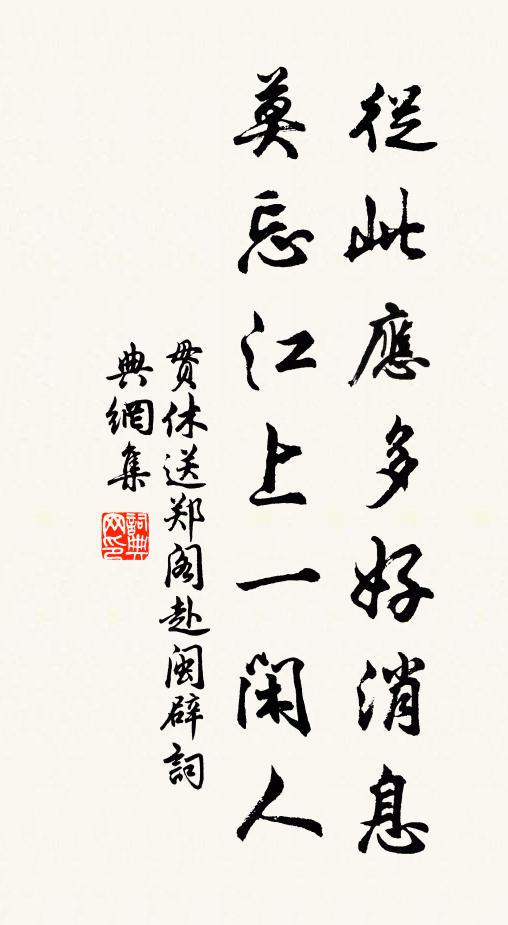 從此應多好消息
莫忘江上一閑人
贯休送郑阁赴闽辟詞
典網集
詞典
网印